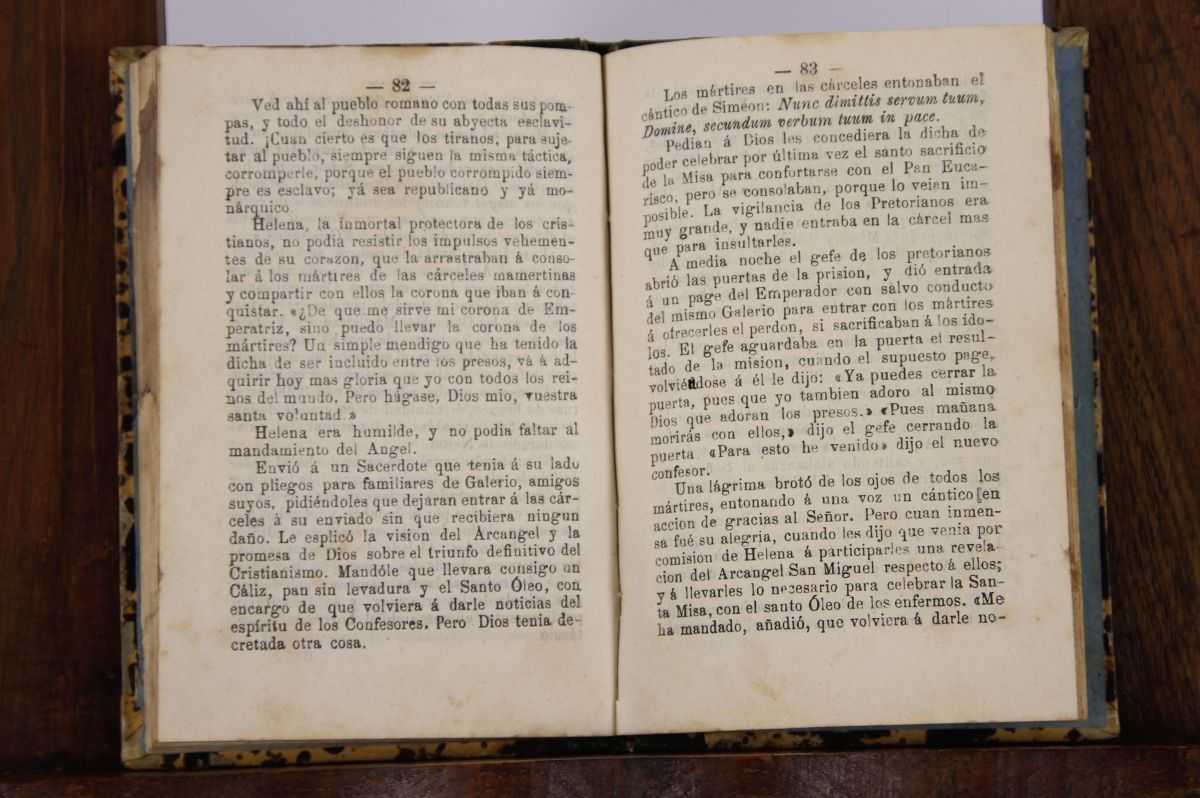 — 82 —
Ved ahí al pueblo romano con todas sus pom-
pas, y todo el deshonor de su abyecta esclavi-
tud. ¡Cuan cierto es que los tiranos, para suje-
tar al pueblo, siempre siguen la misma táctica,
corromperle, porque el pueblo corrompido siem-
pre es esclavo; yá sea republicano y yá mo-
nárquico
Helena, la inmortal protectora de los cris-
tianos, no podia resistir los impulsos vehemen-
tes de su corazon, que la arrastraban á conso-
lar á los mártires de las cárceles mamertinas
y compartir con ellos la corona que iban á con-
quistar. «¿De que me sirve mi corona de Em-
peratriz, sino puedo llevar la corona de los
mártires? Un simple mendigo que ha tenido la
dicha de ser incluido entre los presos, vá á ad-
quirir hoy mas gloria que yo con todos los rei-
nos del mundo. Pero hágase, Dios mio, vuestra
santa voluntad.»
Helena era humilde, y no podia faltar al
mandamiento del Angel.
Envió á un Sacerdote que tenia á su lado
con pliegos para familiares de Galerio, amigos
suyos, pidiéndoles que dejaran entrar á las cár-
celes á su enviado sin que recibiera ningun
daño. Le esplicó la vision del Arcangel y la
promesa de Dios sobre el triunfo definitivo del
Cristianismo. Mandóle que llevara consigo un
Cáliz, pan sin levadura y el Santo Óleo, con
encargo de que volviera á darle noticias del
espíritu de los Confesores. Pero Dios tenia de-
cretada otra cosa.
— 83 —
Los mártires en las cárceles entonaban el
cántico de Simeon: Nunc dimittis servum tuum,
Domine, secundum verbum tuum in pace.
Pedian á Dios les concediera la dicha de
poder celebrar por última vez el santo sacrificio
de la Misa para confortarse con el Pan Euca-
rísco, pero se consolaban, porque lo veian im-
posible. La vigilancia de los Pretorianos era
muy grande, y nadie entraba en la cárcel mas
que para insultarles.
A media noche el gefe de los pretorianos
abrió las puertas de la prision, y dió entrada
á un page del Emperador con salvo conducto
del mismo Galerio para entrar con los mártires
á ofrecerles el perdon, si sacrificaban á los ido-
los. El gefe aguardaba en la puerta el resul-
tado de la mision, cuando el supuesto page,
volviéndose á él le dijo: «Ya puedes cerrar la
puerta, pues que yo tambien adoro al mismo
Dios que adoran los presos.» «Pues mañana
morirás con ellos,» dijo el gefe cerrando la
puerta «Para esto he venido» dijo el nuevo
confesor.
Una lágrima brotó de los ojos de todos los
mártires, entonando á una voz un cántico en
accion de gracias al Señor. Pero cuan inmen-
sa fué su alegria, cuando les dijo que venia por
comision de Helena á participarles una revela-
cion del Arcangel San Miguel respecto á ellos;
y á llevarles lo necesario para celebrar la San-
ta Misa, con el santo Óleo de los enfermos. «Me
ha mandado, añadió, que volviera á darle no-